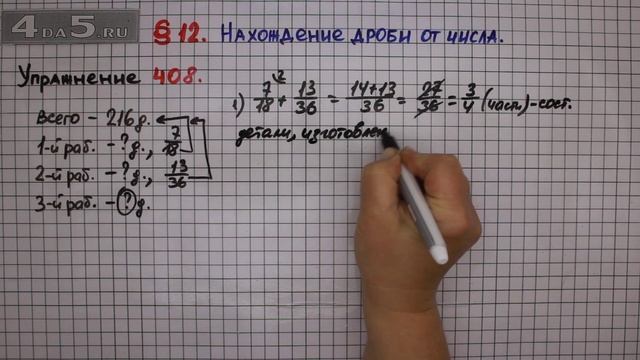 4DA5.RU
§ 12. Нахождение дроби от числа.
Упражнение 408.
Всего – 216 д.
1-й раб. – ? д., 7/18
2-й раб. – ? д., 13/36
3-й раб. – ? д.
1) 7/18 \2 + 13/36 = 14+13/36 = 27/36 = 3/4 (част.) – сост.
детали, изготовлен